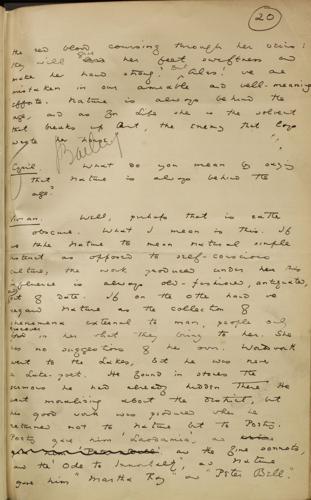 20
the red blood coursing through her veins;
they will give her feet swiftness and
make her hand strong." But alas! we are
mistaken in our amiable and well-meaning
efforts. Nature is always behind the
age, and as for Life she is the solvent
that breaks up Art, the enemy that lays
waste her house.
Cyril. What do you mean by saying
that Nature is always behind the
age?
Vivian. Well, perhaps that is rather
obscure. What I mean is this. If
we take Nature to mean natural simple
instinct as opposed to self-conscious
culture, the work produced under this
influence is always old-fashioned, antiquated,
and out of date. If on the other hand we
regard Nature as the collection of
phenomena external to man, people only
discover in her what they bring to her. She
has no suggestions of her own. Wordsworth
went to the Lakes, but he was never
a Lake-poet. He found in stones the
sermons he had already hidden there. He
went moralizing about the District, but
his good work was produced when he
returned not to Nature but to Poetry.
Poetry gave him 'Laodamia,' and
the fine sonnets,
and the 'Ode to Immortality,' and Nature
gave him "Martha Ray" and "Peter Bell."